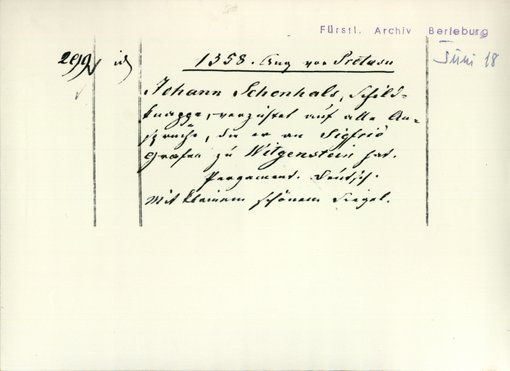 Fürstl. Archiv Berleburg
299 id 1358. Aug vor Pretasu
Juni 18
Johann Schenhals, Schild-
knappe, verzichtet auf alle An-
sprüche, die er an Sigfrid
Grafen zu Witgenstein hat.
Pergament. Deutsch.
Mit kleinem schönem Siegel.